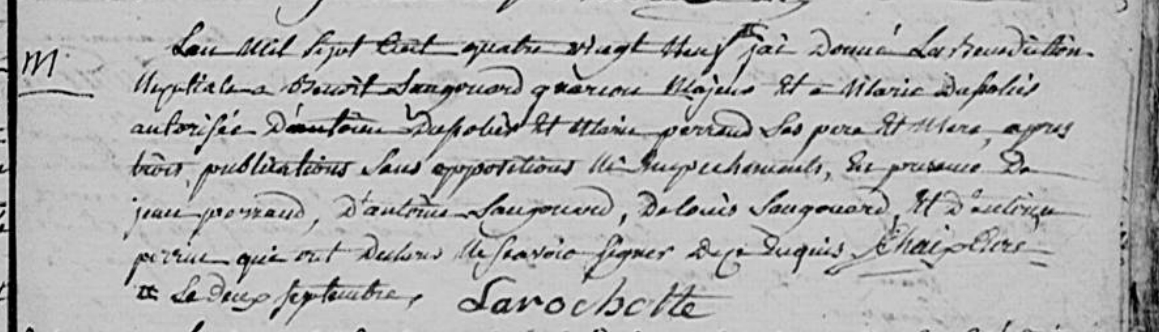 M.
L'an Mil Sept Cent quatre vingt Neuf # j'ai Donné La benediction
Nuptiale a Benoît Sangouard garcon Majeur Et a Marie
autorisée D'antoine Et Marie perraud Ses pere Et Mere, apres
trois publications Sans oppositions Ni Empechements, En presence De
jean perraud, D'antoine Sangouard, De louis Sangouard, Et D'antoine
perrin qui ont Declaré Ne Scavoir Signer De ce Enquis Curé
# Le deux Septembre, Larochette